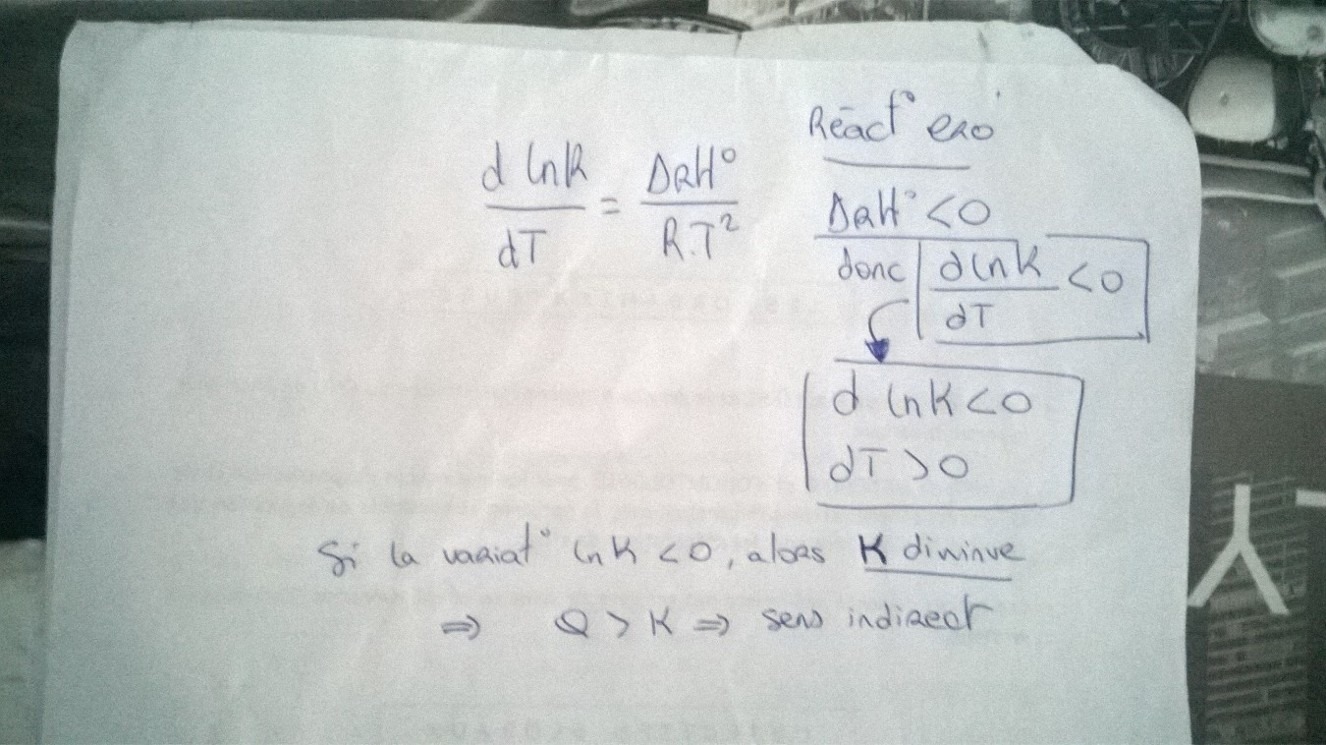 d lnK / dT = ΔRH° / R.T²
Réact° exo
ΔRH° < 0
donc dlnK / dT < 0
d lnK < 0
dT > 0
Si la variat° lnK < 0, alors K diminue
⇒ Q > K ⇒ sens indirect